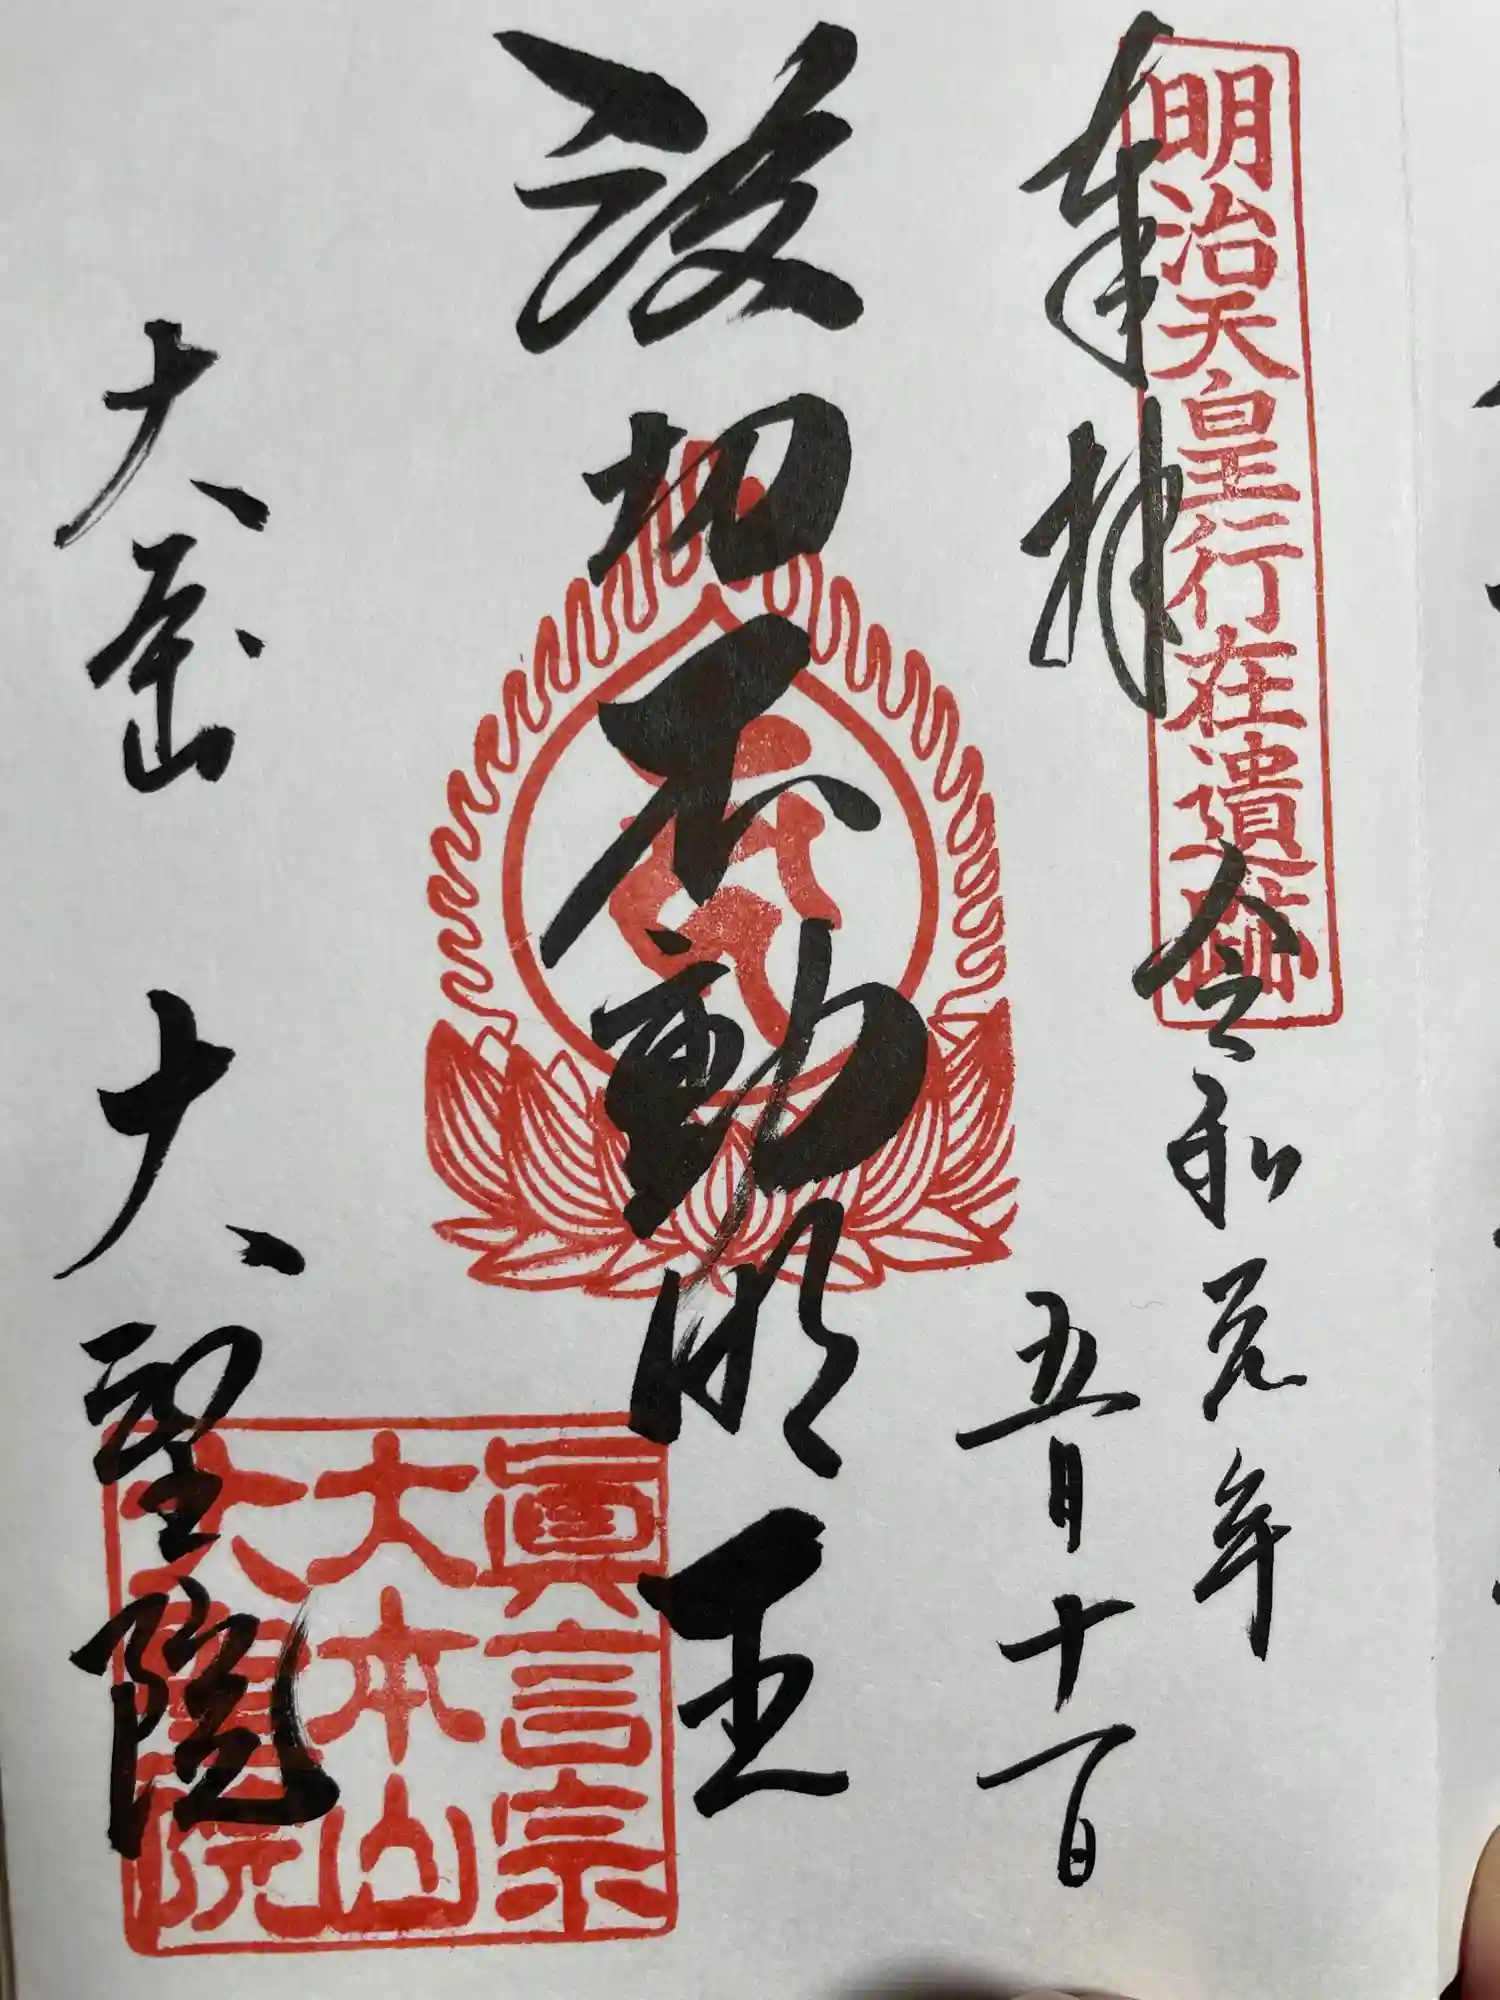 明治天皇行在遺跡
奉拝
令和元年
五月十一日
波切不動明王
大屋山
大聖院
眞言宗
大本山
大聖院